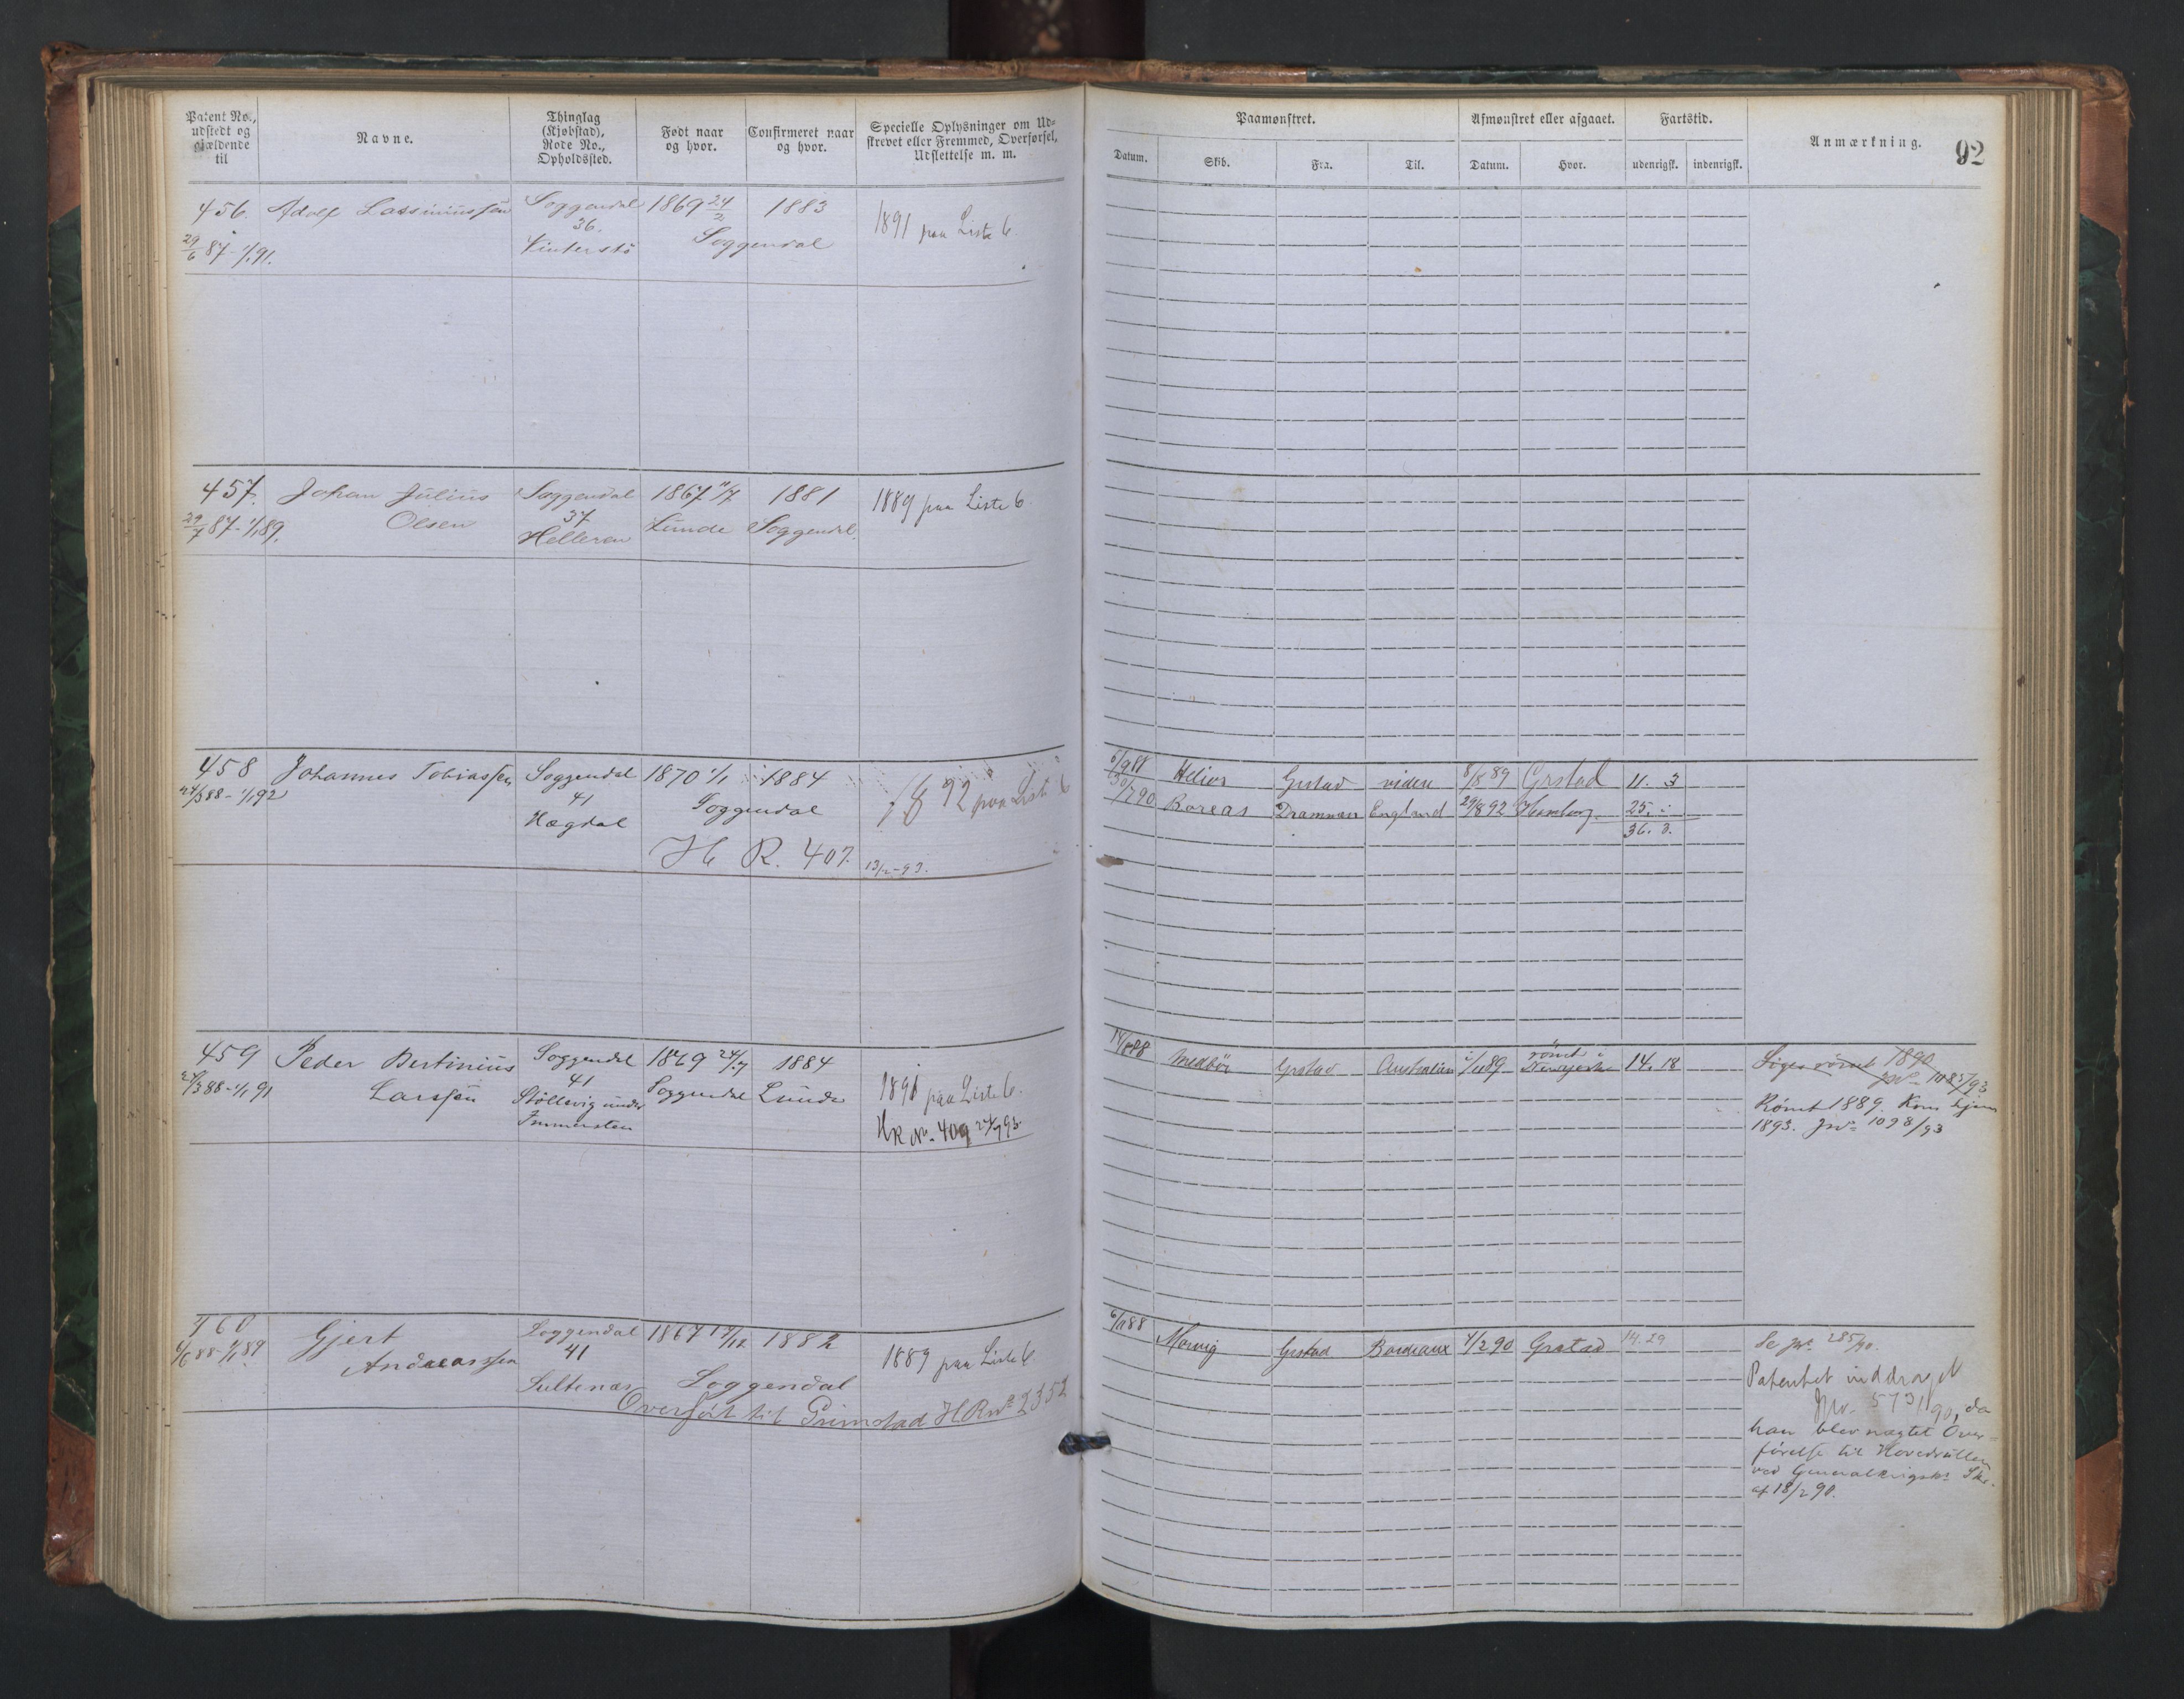 Patent No., udstedt og gjældende til
Navne.
Thinglag (Kjøbstad), Rode No., Opholdssted.
Født naar og hvor.
Confirmeret naar og hvor.
Specielle Oplysninger om Udskrevet eller Fremmed, Overførsel, Udslettelse m. m.
Paamønstret.
Datum.
Skib.
Fra.
Til.
Afmønstret eller afgaaet.
Datum.
Hvor.
Fartstid.
udenrigsk.
indenrigsk.
Anmærkning.
92
456. Adolf Lassiniussen Soggendal 1869 24/2 1883 1891 paa Liste 6
29/6 87-1/1 91. 36. Soggendal
Vinterstø
457. Johan Julius Soggendal 1867 11/7 1881 1889 paa Liste 6
29/7 87-1/1 89. Olsen 37 Lunde Soggendal.
Helleren
458 Johannes Tobiassen Soggendal 1870 1/1 1884 1892 paa Liste 6
24/3 88-1/1 92 41 Soggendal
Hægdal
H R. 407. 13/2-93.
6/9 88 Helios Grstad viden 8/8 89 Grstad 11. 3
30/7 90 Boreas Drammen England 29/8 92 Hamburg 25. "
36. 3.
459 Peder Bertinius Soggendal 1869 24/7 1884 1891 paa Liste 6.
24/3 88-1/1 91 Larssen 41 Soggendal Lunde
Stöllevig under
HR No. 409 24/7 93.
14/8 88 Medbör Grstad Australien 1/1 89 römt i 14. 18
Siges römt 1890
JNo 1085/93
Römt 1889. Kom hjem
1893. JNo 1098/93
460 Gjert Soggendal 1867 17/12 1882 1889 paa Liste 6
4/6 88-1/1 89 Andreassen 41
Sultenæs Soggendal
Overført til Grimstad HRNo 2352
6/11 88 Grstad Bordeaux 4/2 90 Grstad 14. 29
Se JNo 285/90.
Patentet inddraget
JNo. 573/90, da
han blev nægtet Over-
førelse til Hovedrullen
ved Generalkrigsk. Skr.
af 18/2 90.